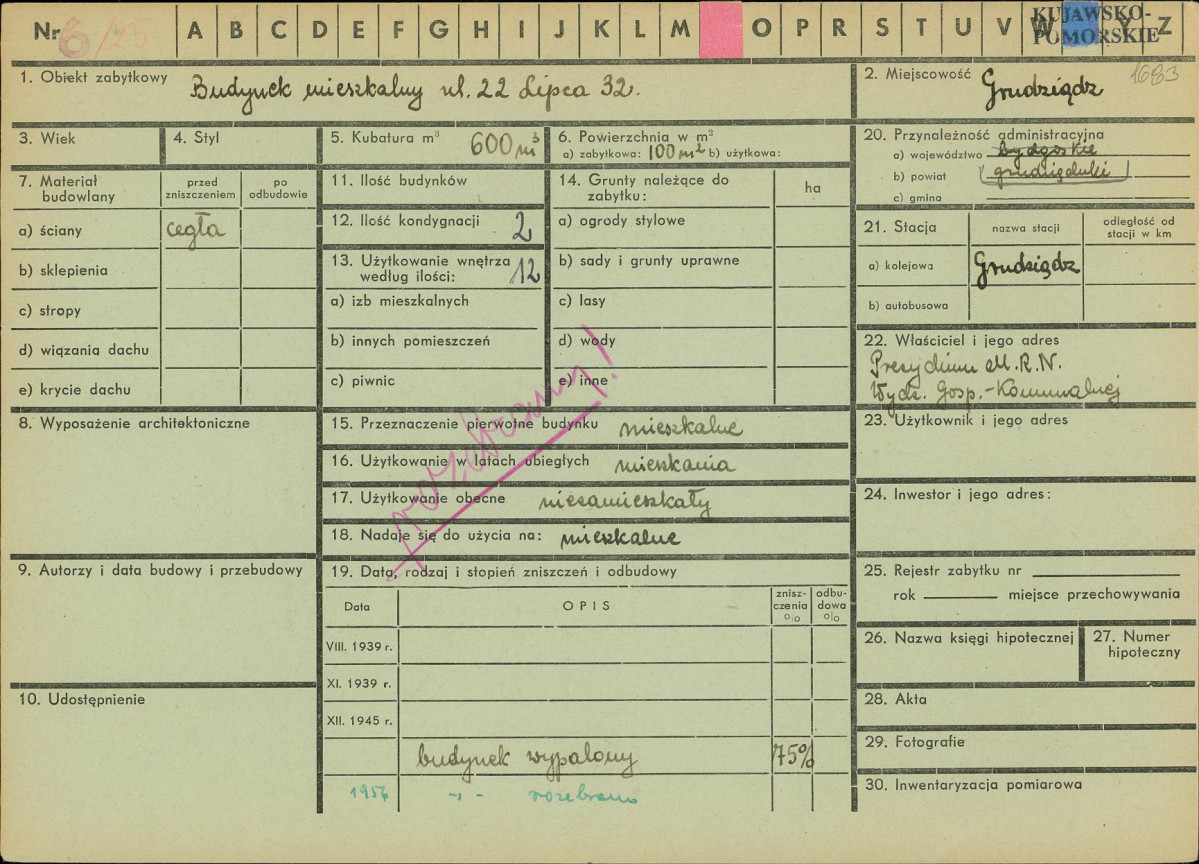 Nr 6/25 A B C D E F G H I J K L M O P R S T U V W Y Z
KUJAWSKO-
POMORSKIE
1683
1. Obiekt zabytkowy Budynek mieszkalny ul. 22 Lipca 32.
2. Miejscowość Grudziądz
3. Wiek
4. Styl
5. Kubatura m³ 600 m³
6. Powierzchnia w m²
a) zabytkowa: 100 m² b) użytkowa:
20. Przynależność administracyjna
a) województwo bydgoskie
b) powiat grudziądzki
c) gmina
7. Materiał budowlany
przed zniszczeniem
po odbudowie
a) ściany cegła
b) sklepienia
c) stropy
d) wiązania dachu
e) krycie dachu
11. Ilość budynków
12. Ilość kondygnacji 2
13. Użytkowanie wnętrza
według ilości: 12
a) izb mieszkalnych
b) innych pomieszczeń
c) piwnic
14. Grunty należące do
zabytku:
ha
a) ogrody stylowe
b) sady i grunty uprawne
c) lasy
d) wody
e) inne
21. Stacja
nazwa stacji
odległość od
stacji w km
a) kolejowa Grudziądz
b) autobusowa
22. Właściciel i jego adres
Prezydium M.R.N.
Wydz. Gosp.-Komunalnej
8. Wyposażenie architektoniczne
15. Przeznaczenie pierwotne budynku mieszkalne
16. Użytkowanie w latach ubiegłych mieszkania
17. Użytkowanie obecne niezamieszkały
18. Nadaje się do użycia na: mieszkalne
rozebrany!
23. Użytkownik i jego adres
24. Inwestor i jego adres:
9. Autorzy i data budowy i przebudowy
10. Udostępnienie
19. Data, rodzaj i stopień zniszczeń i odbudowy
Data
OPIS
znisz-
czenia
o|o
odbu-
dowa
o|o
VIII. 1939 r.
XI. 1939 r.
XII. 1945 r.
budynek wypalony 75%
1956 -,- rozebrano
25. Rejestr zabytku nr
rok miejsce przechowywania
26. Nazwa księgi hipotecznej
27. Numer
hipoteczny
28. Akta
29. Fotografie
30. Inwentaryzacja pomiarowa